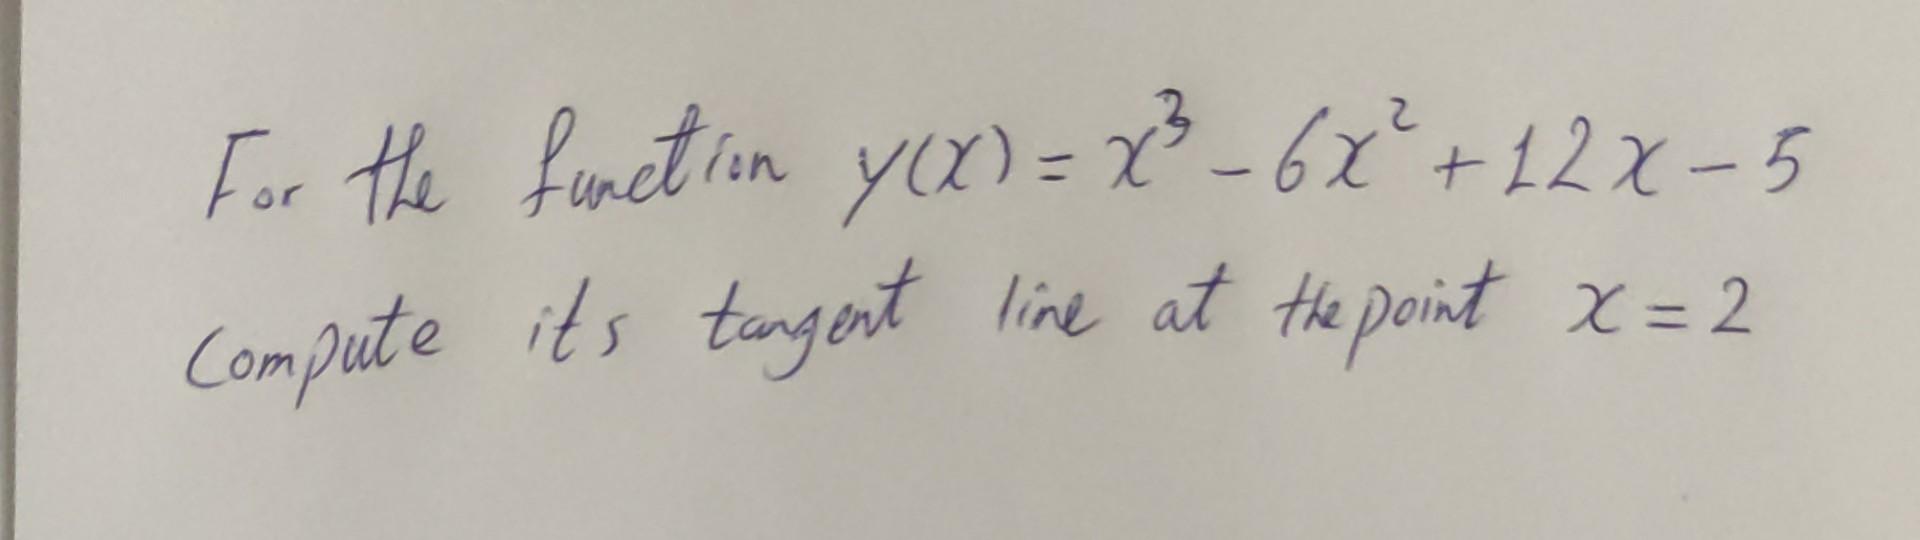 For the function y(x) = x³ - 6x² + 12x - 5
Compute its tangent line at the point x = 2